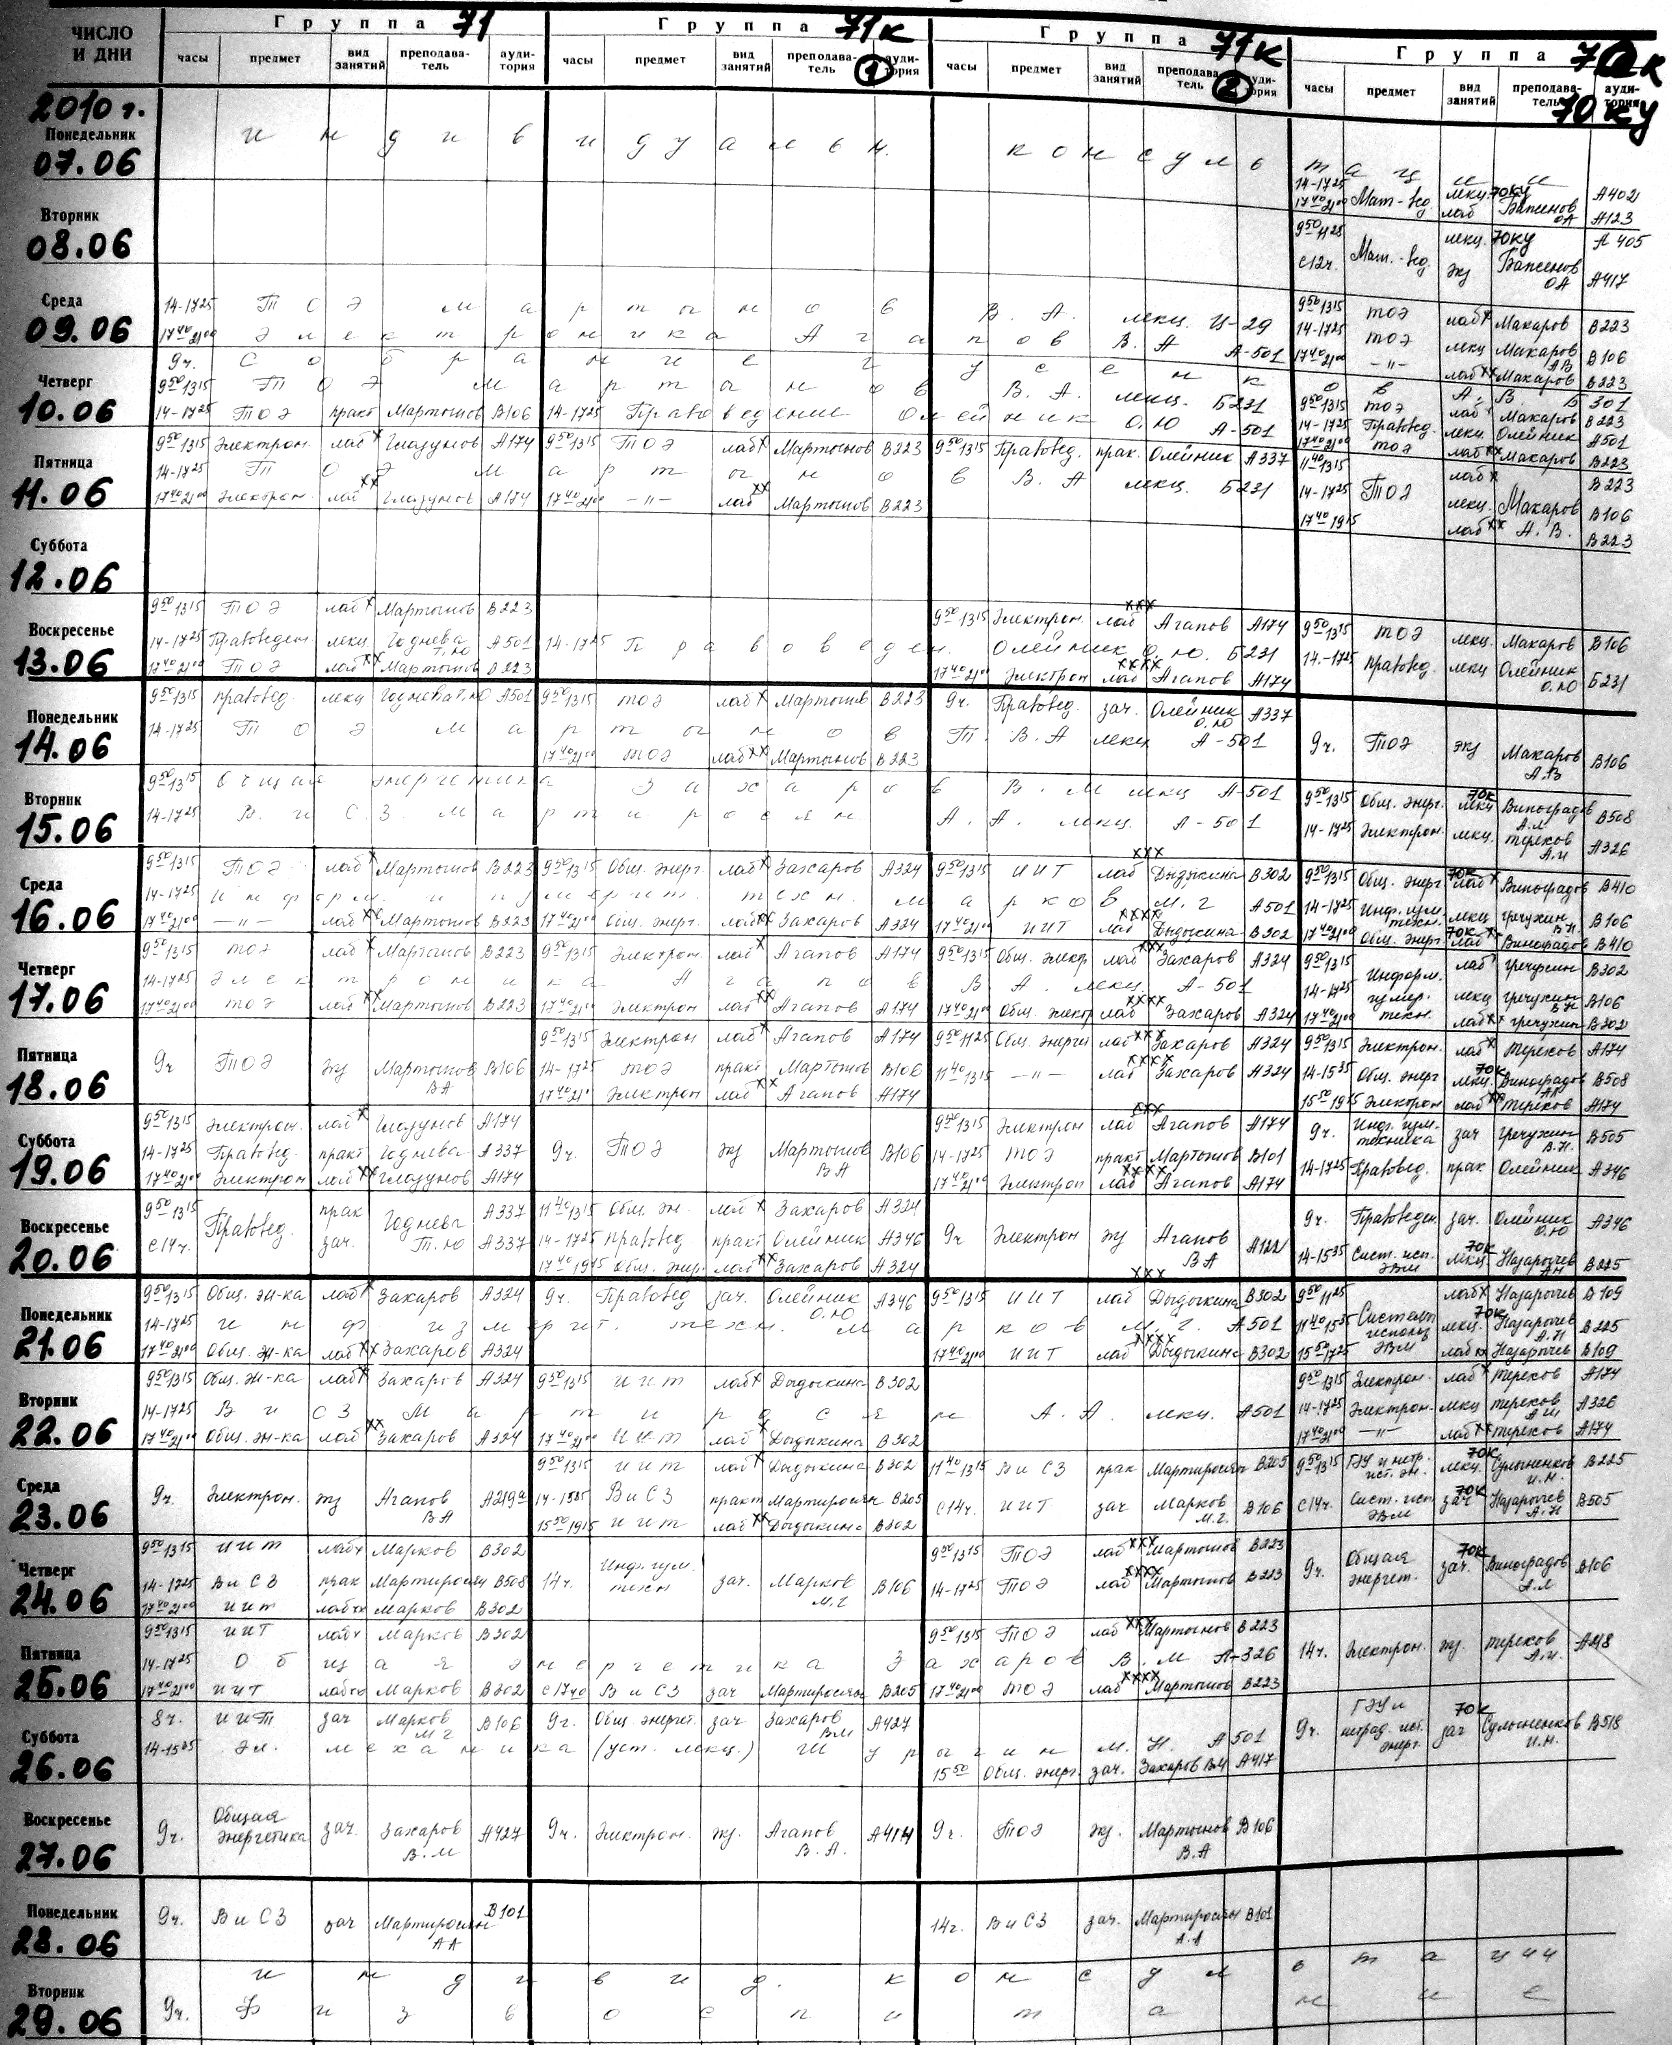 ЧИСЛО И ДНИ
Группа 71
Группа 71к ①
Группа 71к ②
Группа
70ку
часы предмет вид занятий преподаватель аудитория
часы предмет вид занятий преподаватель аудитория
часы предмет вид занятий преподаватель аудитория
часы предмет вид занятий преподаватель аудитория
2010 г.
Понедельник 07.06
индивидуальн. консультации
14-17²⁵ 17⁴⁰21⁰⁰ Мат-вед. лекц. 70ку лаб ОА А402 А123
Вторник 08.06
9⁵⁰11²⁵ лекц. 70ку А405
с12ч. Мат.-вед. экз ОА А417
Среда 09.06
14-17²⁵ ТОЭ Мартынов В.А. лекц. Ц-29
17⁴⁰21⁰⁰ Электроника Агапов В.А А-501
9⁵⁰13¹⁵ ТОЭ лаб x Макаров В223
14-17²⁵ ТОЭ лекц Макаров АВ В106
17⁴⁰21⁰⁰ -"- лаб xx Макаров В223
Четверг 10.06
9ч. Собрание Гусенков А.В. Б301
9⁵⁰13¹⁵ ТОЭ Мартынов В.А. лекц. Б231
14-17²⁵ ТОЭ практ Мартынов В106 14-17²⁵ Правоведение Олейник О.Ю А-501
9⁵⁰13¹⁵ ТОЭ лаб x Макаров В223
14-17²⁵ Правовед. лекц Олейник А501
17⁴⁰21⁰⁰ ТОЭ лаб xx Макаров В223
Пятница 11.06
9⁵⁰13¹⁵ Электрон. лаб x Глазунов А174 9⁵⁰13¹⁵ ТОЭ лаб x Мартынов В223 9⁵⁰13¹⁵ Правовед. прак. Олейник А337
14-17²⁵ ТОЭ Мартынов В.А лекц. Б231
17⁴⁰21⁰⁰ Электрон. лаб xx Глазунов А174 17⁴⁰21⁰⁰ -"- лаб xx Мартынов В223
11⁴⁰13¹⁵ лаб x В223
14-17²⁵ ТОЭ лекц. Макаров В106
17⁴⁰19¹⁵ лаб xx А.В. В223
Суббота 12.06
Воскресенье 13.06
9⁵⁰13¹⁵ ТОЭ лаб x Мартынов В223 9⁵⁰13¹⁵ Электрон. лаб xxx Агапов А174 9⁵⁰13¹⁵ ТОЭ лекц. Макаров В106
14-17²⁵ Правоведен. лекц Годнева Т.Ю А501 14-17²⁵ Правоведен. Олейник О.Ю. Б231 14-17²⁵ Правовед. лекц Олейник О.Ю Б231
17⁴⁰21⁰⁰ ТОЭ лаб xx Мартынов В223 17⁴⁰21⁰⁰ Электрон лаб xxxx Агапов А174
Понедельник 14.06
9⁵⁰13¹⁵ Правовед. лекц Годнева Т.Ю А501 9⁵⁰13¹⁵ ТОЭ лаб x Мартынов В223 9ч. Правовед. зач. Олейник О.Ю А337
14-17²⁵ ТОЭ Мартынов В.А лекц А-501
17⁴⁰21⁰⁰ ТОЭ лаб xx Мартынов В223
9ч. ТОЭ экз Макаров А.В В106
Вторник 15.06
9⁵⁰13¹⁵ Общая энергетика Захаров В.М лекц А-501
14-17²⁵ В и СЗ Мартиросян А.А. лекц. А-501
9⁵⁰13¹⁵ Общ. энерг. 70к лекц Виноградов А.Л В508
14-17²⁵ Электрон. лекц. Терехов А.И А326
Среда 16.06
9⁵⁰13¹⁵ ТОЭ лаб x Мартынов В223 9⁵⁰13¹⁵ Общ. энерг. лаб x Захаров А324 9⁵⁰13¹⁵ ИИТ лаб xxx Дыдыкина В302 9⁵⁰13¹⁵ Общ. энерг 70к лаб x Виноградов В410
14-17²⁵ Информ. измерит. техн. Марков М.Г А501 14-17²⁵ лекц Гречухин В.Н. В106
17⁴⁰21⁰⁰ -"- лаб xx Мартынов В223 17⁴⁰21⁰⁰ Общ. энерг. лаб xx Захаров А324 17⁴⁰21⁰⁰ ИИТ лаб xxxx Дыдыкина В302 17⁴⁰21⁰⁰ Общ. энерг 70к лаб xx Виноградов В410
Четверг 17.06
9⁵⁰13¹⁵ ТОЭ лаб x Мартынов В223 9⁵⁰13¹⁵ Электрон. лаб x Агапов А174 9⁵⁰13¹⁵ Общ. энерг лаб xxx Захаров А324 9⁵⁰13¹⁵ лаб x Гречухин В302
14-17²⁵ Электроника Агапов В.А. лекц. А-501 14-17²⁵ Информ. измер. техн. лекц Гречухин В.Н В106
17⁴⁰21⁰⁰ ТОЭ лаб xx Мартынов В223 17⁴⁰21⁰⁰ Электрон лаб xx Агапов А174 17⁴⁰21⁰⁰ Общ. энерг лаб xxxx Захаров А324 17⁴⁰21⁰⁰ лаб xx Гречухин В302
Пятница 18.06
9⁵⁰13¹⁵ Электрон лаб x Агапов А174 9⁵⁰11²⁵ Общ. энергет лаб xxx Захаров А324 9⁵⁰13¹⁵ Электрон. лаб x Терехов А174
9ч ТОЭ экз Мартынов ВА В106 14-17²⁵ ТОЭ практ Мартынов В106 11⁴⁰13¹⁵ -"- лаб xxxx Захаров А324 14-15³⁵ Общ. энерг 70к лекц. Виноградов АЛ В508
17⁴⁰21⁰⁰ Электрон лаб xx Агапов А174 15⁵⁰19¹⁵ Электрон лаб xx Терехов А174
Суббота 19.06
9⁵⁰13¹⁵ Электрон. лаб x Глазунов А174 9⁵⁰13¹⁵ Электрон лаб xxx Агапов А174 9ч. Инф. изм. техника зач Гречухин В.Н. В505
14-17²⁵ Правовед. практ Годнева А337 9ч. ТОЭ экз Мартынов ВА В106 14-17²⁵ ТОЭ практ Мартынов В101 14-17²⁵ Правовед. прак Олейник А346
17⁴⁰21⁰⁰ Электрон лаб xx Глазунов А174 17⁴⁰21⁰⁰ Электрон лаб xxxx Агапов А174
Воскресенье 20.06
9⁵⁰13¹⁵ прак А337 11⁴⁰13¹⁵ Общ. эн. лаб x Захаров А324 9ч. Правоведен. зач. Олейник О.Ю А346
с14ч. Правовед. зач. Годнева Т.Ю А337 14-17²⁵ Правовед практ Олейник А346 9ч Электрон экз Агапов ВА А122 14-15³⁵ Сист. исп. ЭВМ 70к лекц Назарычев АН В225
17⁴⁰19¹⁵ Общ. энер. лаб xx Захаров А324
Понедельник 21.06
9⁵⁰13¹⁵ Общ. эн-ка лаб x Захаров А324 9ч. Правовед зач. Олейник О.Ю А346 9⁵⁰13¹⁵ ИИТ лаб xxx Дыдыкина В302 9⁵⁰11²⁵ лаб x Назарычев В109
14-17²⁵ Инф. измерит. техн. Марков М.Г. А501 11⁴⁰15³⁵ ЭВМ 70к лекц. Назарычев А.Н В225
17⁴⁰21⁰⁰ Общ. эн-ка лаб xx Захаров А324 17⁴⁰21⁰⁰ ИИТ лаб xxxx Дыдыкина В302 15⁵⁰17²⁵ лаб xx Назарычев В109
Вторник 22.06
9⁵⁰13¹⁵ Общ. эн-ка лаб x Захаров А324 9⁵⁰13¹⁵ ИИТ лаб x Дыдыкина В302 9⁵⁰13¹⁵ Электрон. лаб x Терехов А174
14-17²⁵ В и СЗ Мартиросян А.А. лекц. А501 14-17²⁵ Электрон. лекц Терехов А.И А326
17⁴⁰21⁰⁰ Общ. эн-ка лаб xx Захаров А324 17⁴⁰21⁰⁰ ИИТ лаб Дыдыкина В302 17⁴⁰21⁰⁰ -"- лаб xx Терехов А174
Среда 23.06
9⁵⁰13¹⁵ ИИТ лаб x Дыдыкина В302 11⁴⁰13¹⁵ ВиСЗ прак Мартиросян В205 9⁵⁰13¹⁵ 70к лекц. И.Н. В225
9ч. Электрон. экз Агапов ВА А219а 14-15³⁵ ВиСЗ практ Мартиросян В205 с14ч. ИИТ зач Марков М.Г. В106 с14ч. Сист. исп ЭВМ 70к зач Назарычев А.Н В505
15⁵⁰19¹⁵ ИИТ лаб xx Дыдыкина В302
Четверг 24.06
9⁵⁰13¹⁵ ИИТ лаб x Марков В302 9⁵⁰13¹⁵ ТОЭ лаб xxx Мартынов В223
14-17²⁵ ВиСЗ прак Мартиросян В508 14ч. Инф. изм. техн зач. Марков М.Г В106 14-17²⁵ ТОЭ лаб xxxx Мартынов В223 9ч. Общая энергет. 70к зач. Виноградов А.Л В106
17⁴⁰21⁰⁰ ИИТ лаб xx Марков В302
Пятница 25.06
9⁵⁰13¹⁵ ИИТ лаб x Марков В302 9⁵⁰13¹⁵ ТОЭ лаб xxx Мартынов В223
14-17²⁵ Общая энергетика Захаров В.М А-326 14ч. Электрон. экз Терехов А.И. А218
17⁴⁰21⁰⁰ ИИТ лаб xx Марков В302 с17⁴⁰ ВиСЗ зач Мартиросян В205 17⁴⁰21⁰⁰ ТОЭ лаб xxxx Мартынов В223
Суббота 26.06
8ч. ИИТ зач Марков МГ В106 9г. Общ. энергет. зач Захаров ВМ А427 9ч. 70к зач И.Н. В518
14-15³⁵ Эл. механика (уст. лекц.) Шурыгин М.Н. А501
15⁵⁰ Общ. энерг. зач. Захаров ВМ А417
Воскресенье 27.06
9г. Общая энергетика зач. Захаров В.М А427 9ч. Электрон. экз. Агапов В.А. А414 9г. ТОЭ экз. Мартынов В.А В106
Понедельник 28.06
9ч. ВиСЗ зач Мартиросян АА В101 14г. ВиСЗ зач. Мартиросян А.А В101
Вторник 29.06
индивид. консультации
9ч. Физвоспитание